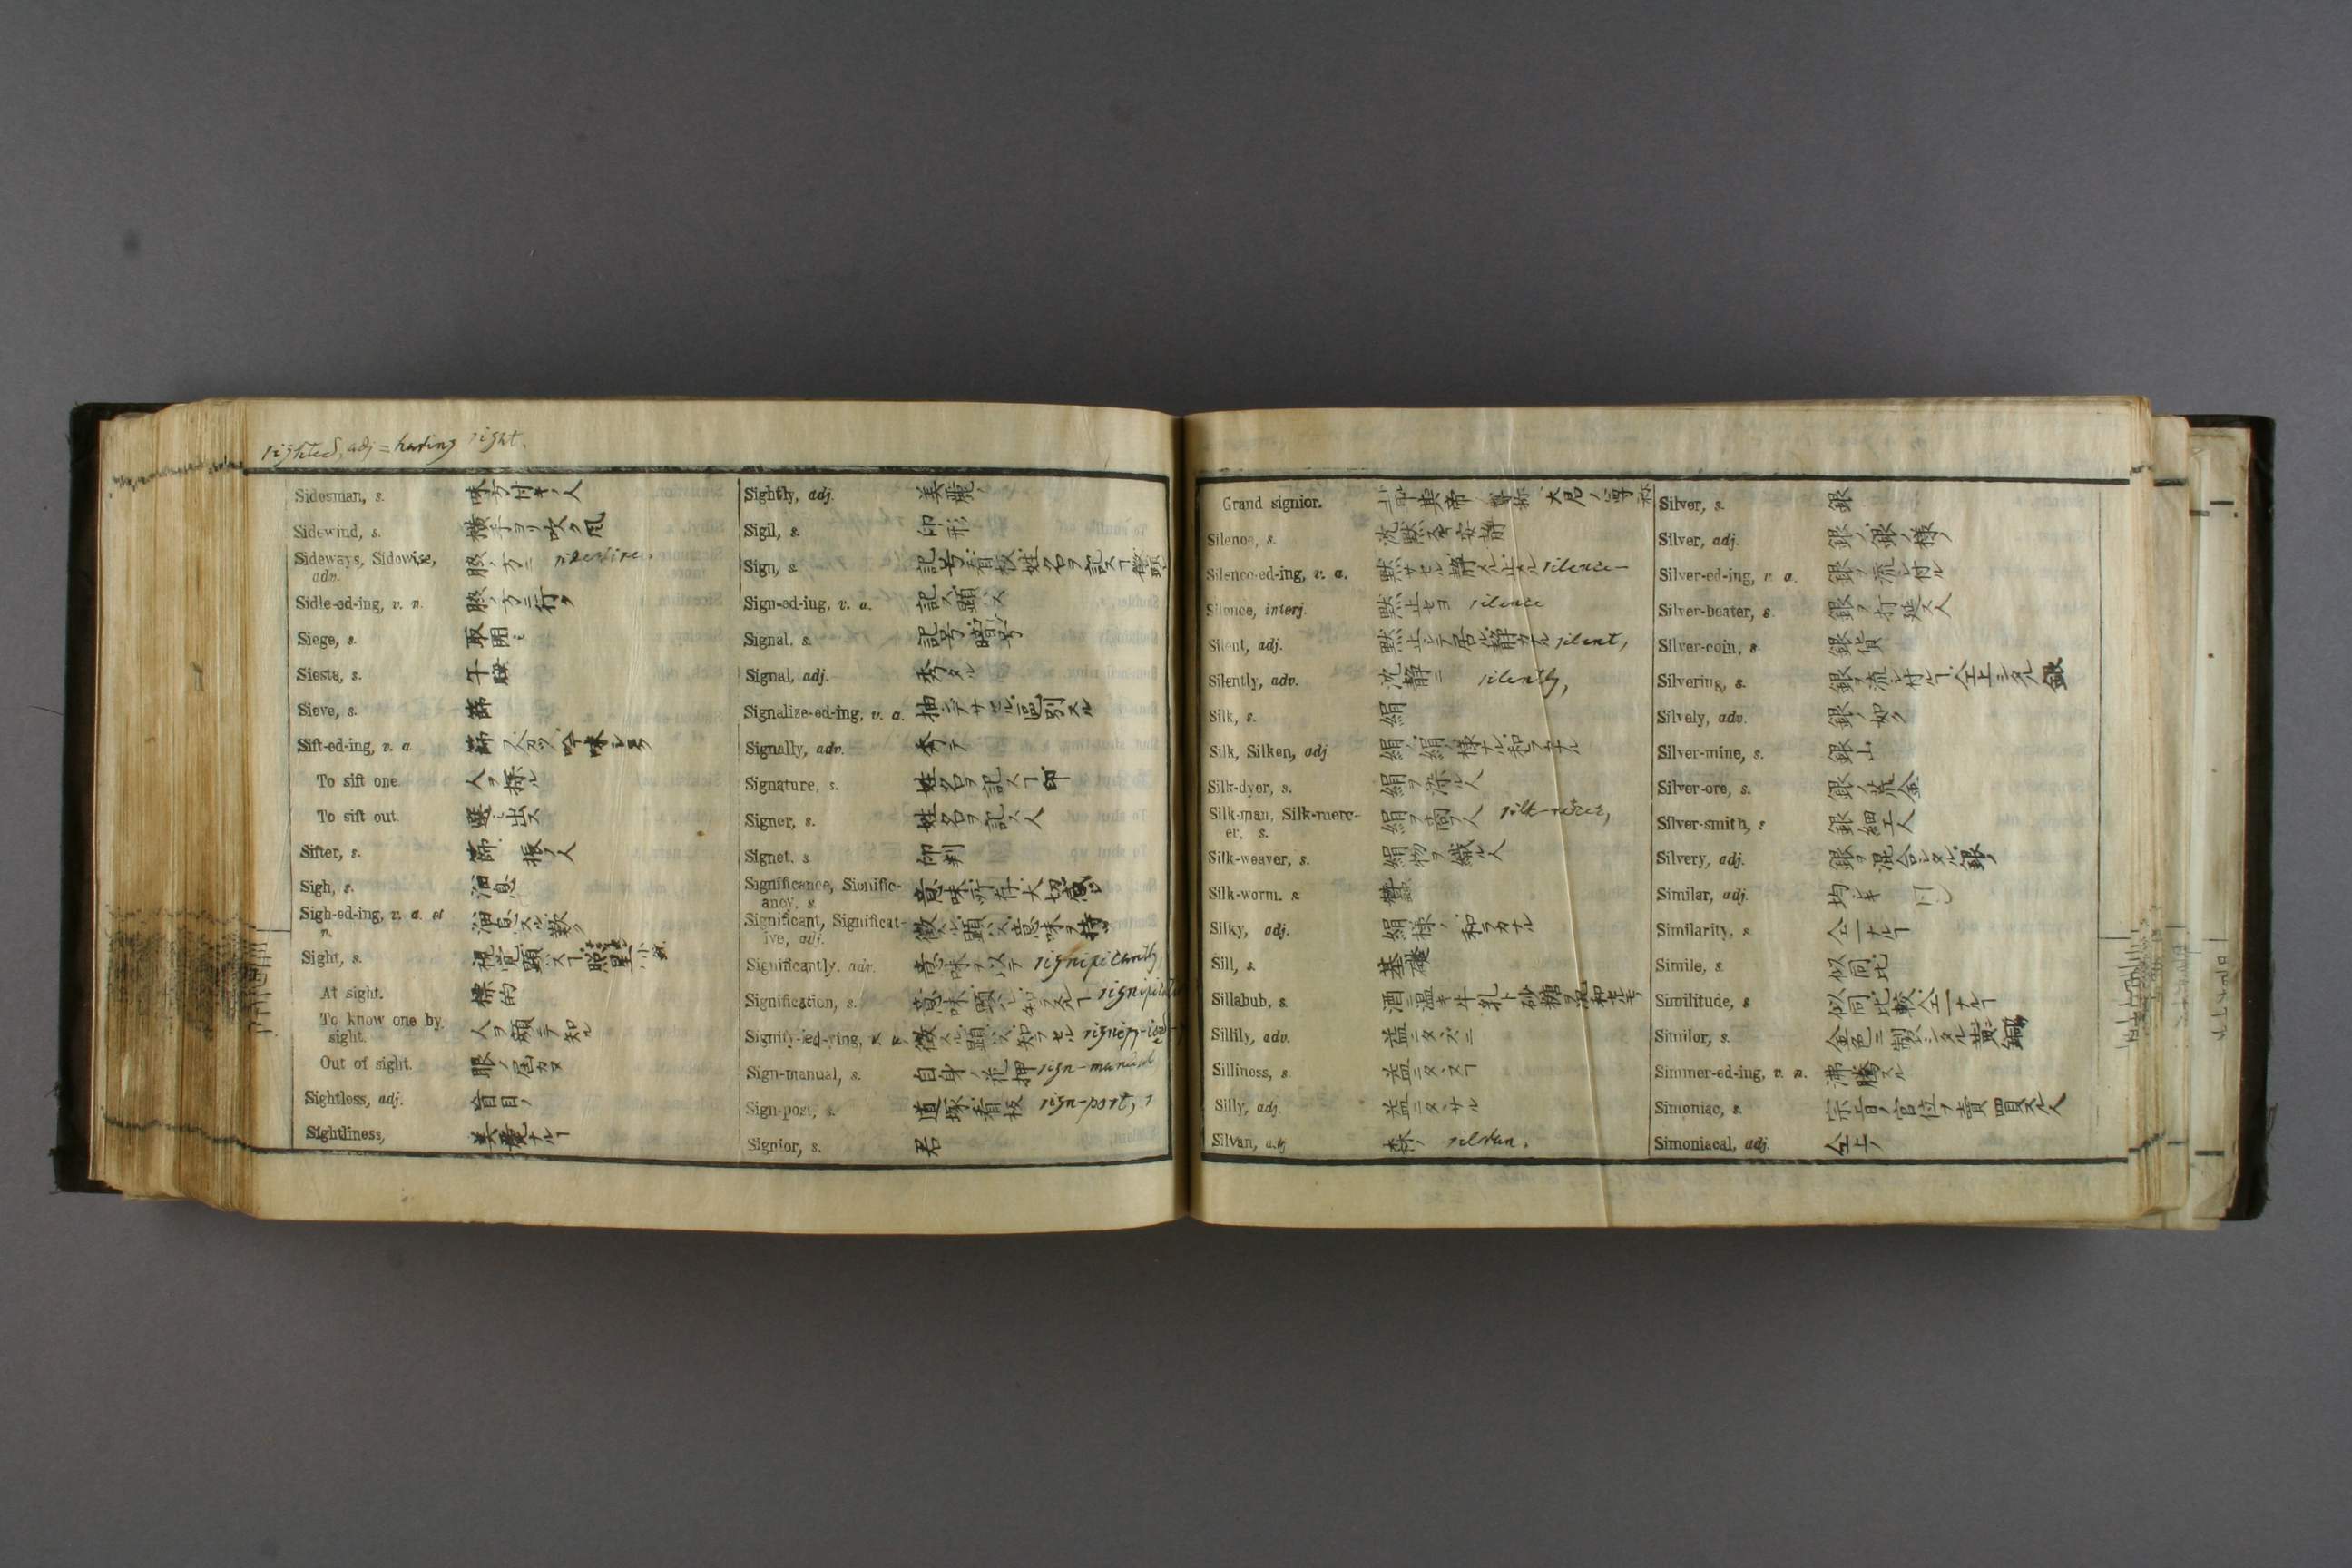 sighted, adj = having sight.
Sidesman, s.
Sidewind, s. 横手ヨリ吹ク風
Sideways, Sidewise, adv. 脇ノ方ニ sidewise.
Sidle-ed-ing, v. n. 脇ノ方ニ行ク
Siege, s. 取囲ミ
Siesta, s. 午睡
Sieve, s. 篩
Sift-ed-ing, v. a. 吟味シタ
To sift one.
To sift out. 選ミ出ス
Sifter, s.
Sigh, s. 溜息
Sigh-ed-ing, v. a. et n. 溜息スル 歎ク
Sight, s.
At sight. 標的
To know one by sight. 人ヲ顔ニテ知ル
Out of sight. 眼ノ届カヌ
Sightless, adj. 盲目ノ
Sightliness, 美麗ナルヿ
Sightly, adj. 美麗ノ
Sigil, s. 印形
Sign, s. 記号 看板 姓名ヲ記スヿ
Sign-ed-ing, v. a. 記ス 顕ハス
Signal, s. 記号 暗号
Signal, adj. 秀タル
Signalize-ed-ing, v. a.
Signally, adv. 秀テ
Signature, s. 姓名ヲ記スヿ 印
Signer, s. 姓名ヲ記ス人
Signet, s. 印判
Significance, Significancy, s. 意味 大切
Significant, Significative, adj. 顕ハス 意味ヲ持
Significantly, adv. 意味ヲ以テ significantly
Signification, s.
Signify-ied-ying, v. a.
Sign-manual, s. 自身ノ花押 sign-manual
Sign-post, s. 道塚 看板 sign-post, s
Signior, s. 君
Grand signior.
Silence, s. 沈黙 安静
Silence-ed-ing, v. a. silence-
Silence, interj. 黙止セヨ silence
Silent, adj. silent,
Silently, adv. 沈静ニ silently,
Silk, s. 絹
Silk, Silken, adj. 絹ノ 絹ノ様ナル 和ラカナル
Silk-dyer, s. 絹ヲ染ル人
Silk-man, Silk-mercer, s. 絹ヲ商フ人
Silk-weaver, s. 絹物ヲ織ル人
Silk-worm, s. 蚕
Silky, adj. 絹様ノ 和ラカナル
Sill, s. 基礎
Sillabub, s.
Sillily, adv. 益ニタヽズニ
Silliness, s. 益ニタヽヌヿ
Silly, adj. 益ニタヽザル
Silvan, adj. 森ノ silvan.
Silver, s. 銀
Silver, adj. 銀ノ 銀ノ様ノ
Silver-ed-ing, v. a. 銀ヲ流シ付ル
Silver-beater, s. 銀ヲ打延ス人
Silver-coin, s. 銀貨
Silvering, s.
Silvely, adv. 銀ノ如ク
Silver-mine, s. 銀山
Silver-ore, s. 銀ノ荒金
Silver-smith, s. 銀細工人
Silvery, adj. 銀ヲ混合シタル 銀ノ
Similar, adj. 均シキ 同シ
Similarity, s. 仝一ナルヿ
Simile, s. 似同 比
Similitude, s. 似同 比較 仝一ナルヿ
Similor, s. 金色ニ製シタル黄銅
Simmer-ed-ing, v. n. 沸騰スル
Simoniac, s. 宗旨ノ官位ヲ売買スル人
Simoniacal, adj. 仝上ノ